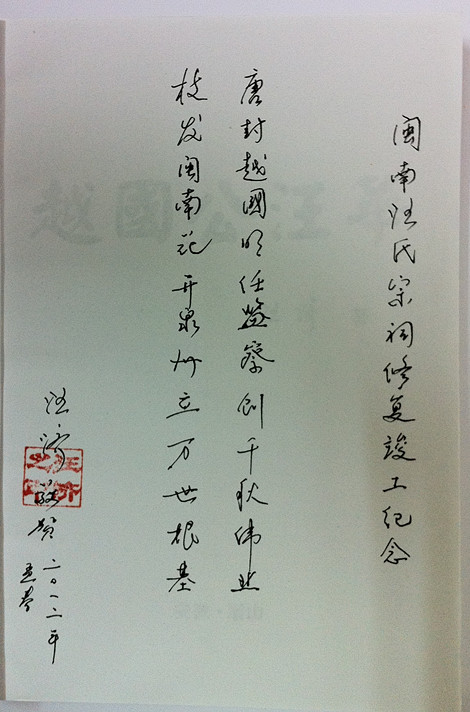 闽南汪氏宗祠修复竣工纪念
唐封越國明任监察创千秋伟业
枝发闽南花开泉州立万世根基
汪济 贺
二〇一二年
孟春